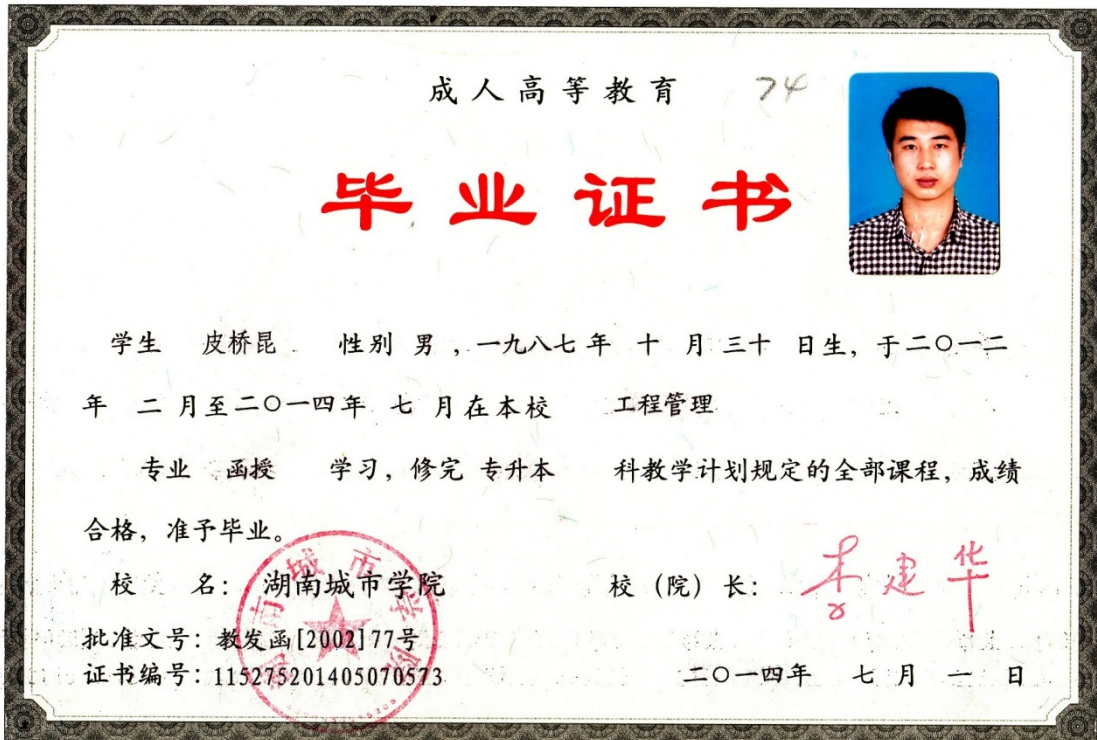 成人高等教育 74
毕业证书
学生 皮桥昆 性别 男，一九八七年 十 月 三十 日生，于二〇一二
年 二 月至二〇一四年 七 月在本校 工程管理
专业 函授 学习，修完 专升本 科教学计划规定的全部课程，成绩
合格，准予毕业。
校 名：湖南城市学院 校（院）长：李建华
批准文号：教发函[2002]77号
证书编号：115275201405070573 二〇一四年 七 月 一 日
湖南城市学院